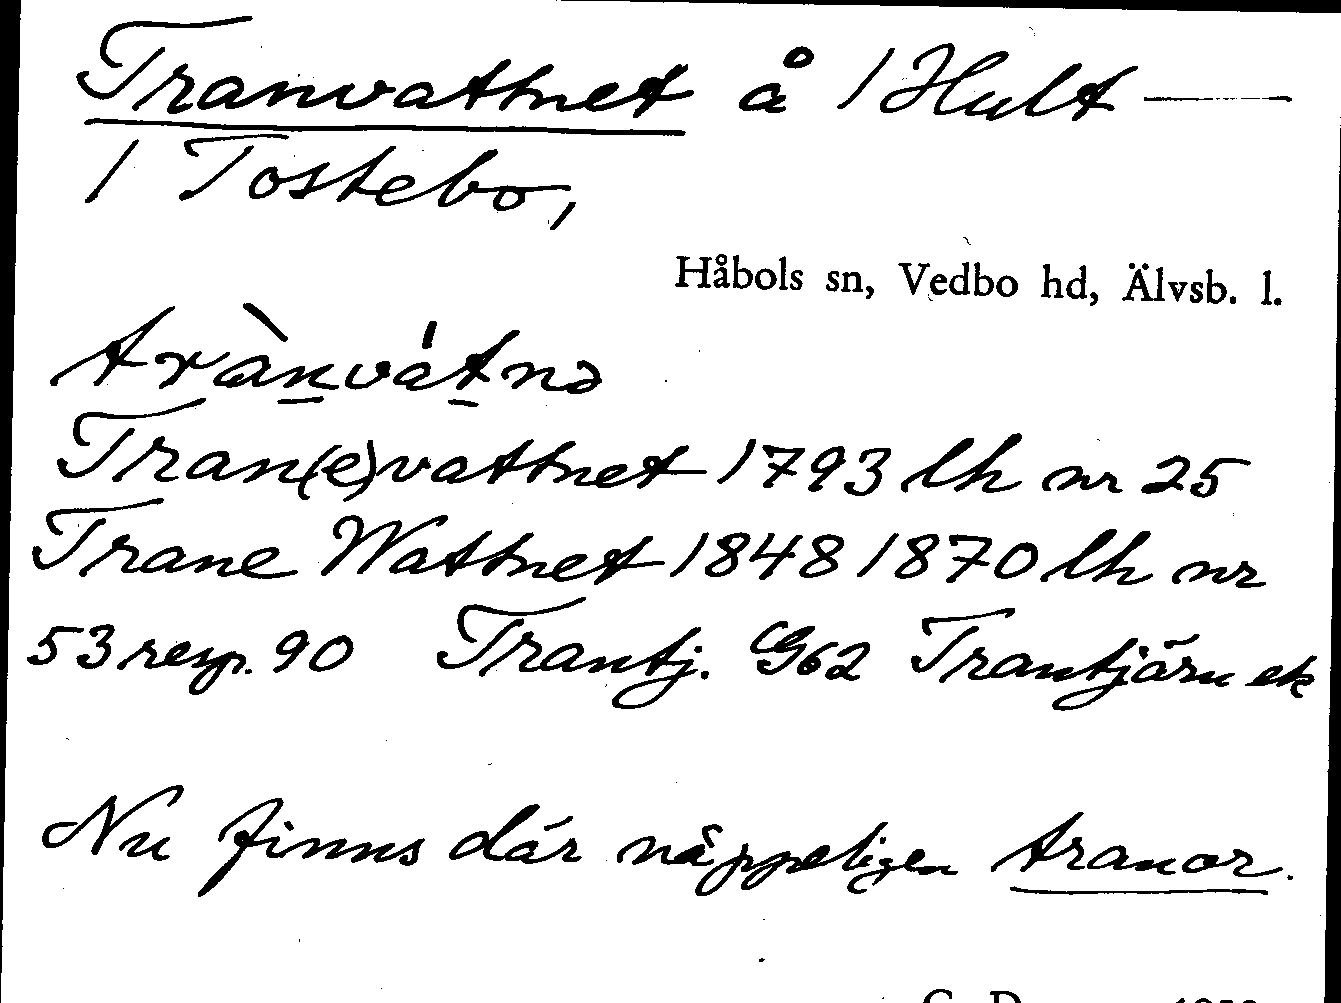 Tranvattnet å 1 Hult —
1 Tostebo,
Håbols sn, Vedbo hd, Älvsb. l.
tràn̲vát̲nə
Tran(e)vattnet 1793 lh nr 25
Trane Wattnet 1848 1870 lh nr
53 resp. 90 Trantj. G62 Trantjärn ek
Nu finns där näppeligen tranor.